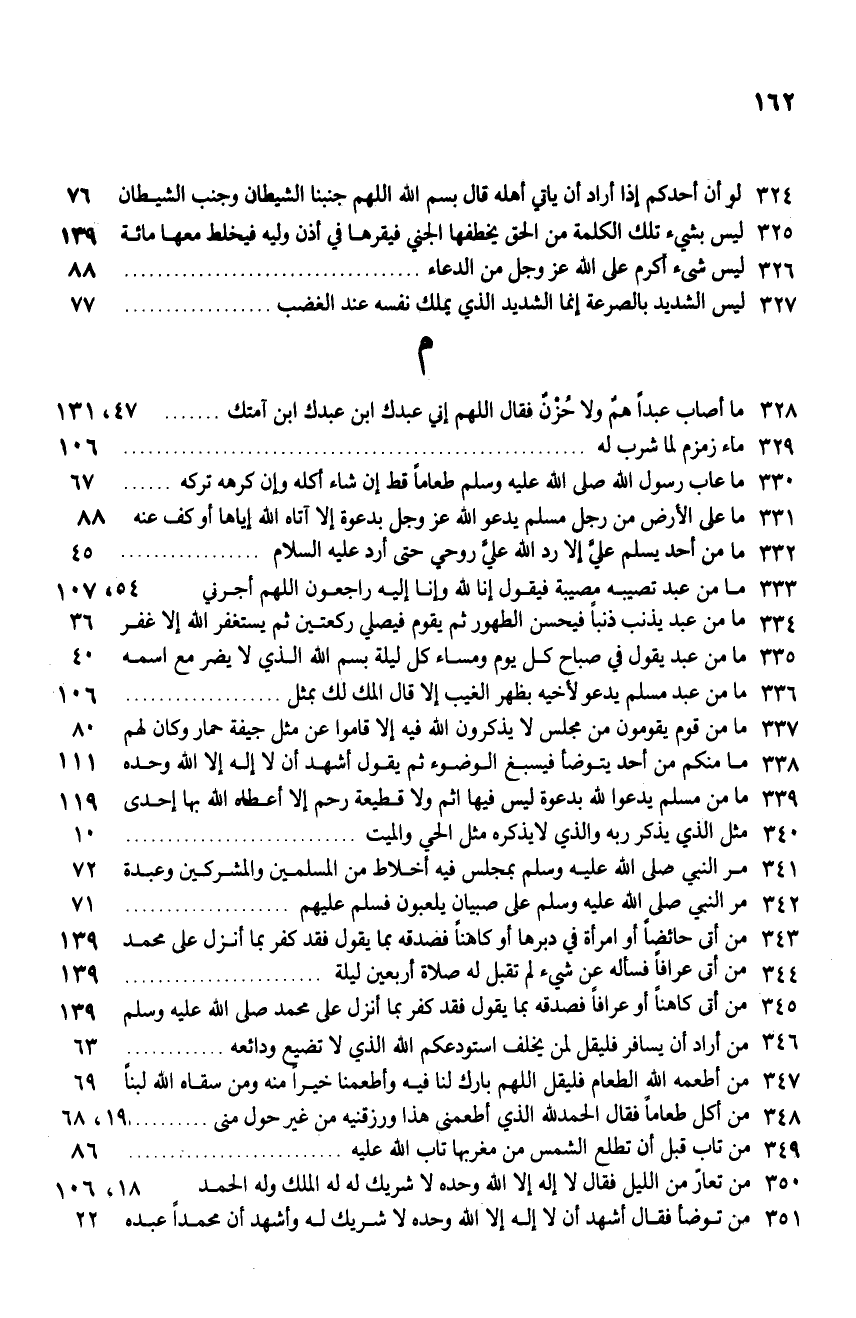 ١٦٢
٣٢٤ لو أن أحدكم إذا أراد أن ياتي أهله قال بسم الله اللهم جنبنا الشيطان وجنب الشيـطان ٧٦
٣٢٥ ليس بشيء تلك الكلمة من الحق يخطفها الجني فيقرهـا في أذن وليه فيخلط معهـا مائـة ١٣٩
٣٢٦ ليس شىء أكرم على الله عز وجل من الدعاء .................................. ٨٨
٣٢٧ ليس الشديد بالصرعة إنما الشديد الذي يملك نفسه عند الغضب .................. ٧٧
م
٣٢٨ ما أصاب عبداً همٌ ولا حُزْنٌ فقال اللهم إني عبدك ابن عبدك ابن آمتك ....... ٤٧، ١٣١
٣٢٩ ماء زمزم لما شرب له .................................................... ١٠٦
٣٣٠ ما عاب رسول الله صلى الله عليه وسلم طعاماً قط إن شاء أكله وإن كرهه تركه ...... ٦٧
٣٣١ ما على الأرض من رجل مسلم يدعو الله عز وجل بدعوة إلا آتاه الله إياها أو كف عنه ٨٨
٣٣٢ ما من أحد يسلم عليَّ إلا رد الله عليَّ روحي حتى أرد عليه السلام ................. ٤٥
٣٣٣ مـا من عبد تصيبـه مصيبة فيقـول إنا لله وإنـا إليـه راجعـون اللهم أجـرني ٥٤، ١٠٧
٣٣٤ ما من عبد يذنب ذنباً فيحسن الطهور ثم يقوم فيصلي ركعتـين ثم يستغفر الله إلا غفـر ٣٦
٣٣٥ ما من عبد يقول في صباح كـل يوم ومسـاء كل ليلة بسم الله الـذي لا يضر مع اسمـه ٤٠
٣٣٦ ما من عبد مسلم يدعو لأخيه بظهر الغيب إلا قال الملك لك بمثل ................... ١٠٦
٣٣٧ ما من قوم يقومون من مجلس لا يذكرون الله فيه إلا قاموا عن مثل جيفة حمار وكان لهم ٨٠
٣٣٨ مـا منكم من أحد يتـوضأ فيسبـغ الـوضـوء ثم يقـول أشهـد أن لا إلـه إلا الله وحـده ١١١
٣٣٩ ما من مسلم يدعوا لله بدعوة ليس فيها اثم ولا قـطيعة رحم إلا أعـطاه الله بها إحـدى ١١٩
٣٤٠ مثل الذي يذكر ربه والذي لايذكره مثل الحي والميت ............................ ١٠
٣٤١ مـر النبي صلى الله عليـه وسلم بمجلس فيه أخـلاط من المسلمـين والمشـركـين وعبـدة ٧٢
٣٤٢ مر النبي صلى الله عليه وسلم على صبيان يلعبون فسلم عليهم .................... ٧١
٣٤٣ من أتى حائضاً أو امرأة في دبرها أو كاهناً فصدقه بما يقول فقد كفر بما أنـزل على محمـد ١٣٩
٣٤٤ من أتى عرافاً فسأله عن شيء لم تقبل له صلاة أربعين ليلة ....................... ١٣٩
٣٤٥ من أتى كاهناً أو عرافاً فصدقه بما يقول فقد كفر بما أنزل على محمد صلى الله عليه وسلم ١٣٩
٣٤٦ من أراد أن يسافر فليقل لمن يخلف استودعكم الله الذي لا تضيع ودائعه ............ ٦٣
٣٤٧ من أطعمه الله الطعام فليقل اللهم بارك لنا فيـه وأطعمنا خيـراً منه ومن سقـاه الله لبناً ٦٩
٣٤٨ من أكل طعاماً فقال الحمدلله الذي أطعمنى هذا ورزقنيه من غير حول منى .......... ١٩، ٦٨
٣٤٩ من تاب قبل أن تطلع الشمس من مغربها تاب الله عليه .......................... ٨٦
٣٥٠ من تعارّ من الليل فقال لا إله إلا الله وحده لا شريك له له الملك وله الحمـد ١٨، ١٠٦
٣٥١ من تـوضأ فقـال أشهد أن لا إلـه إلا الله وحده لا شـريك لـه وأشهد أن محمـداً عبـده ٢٢